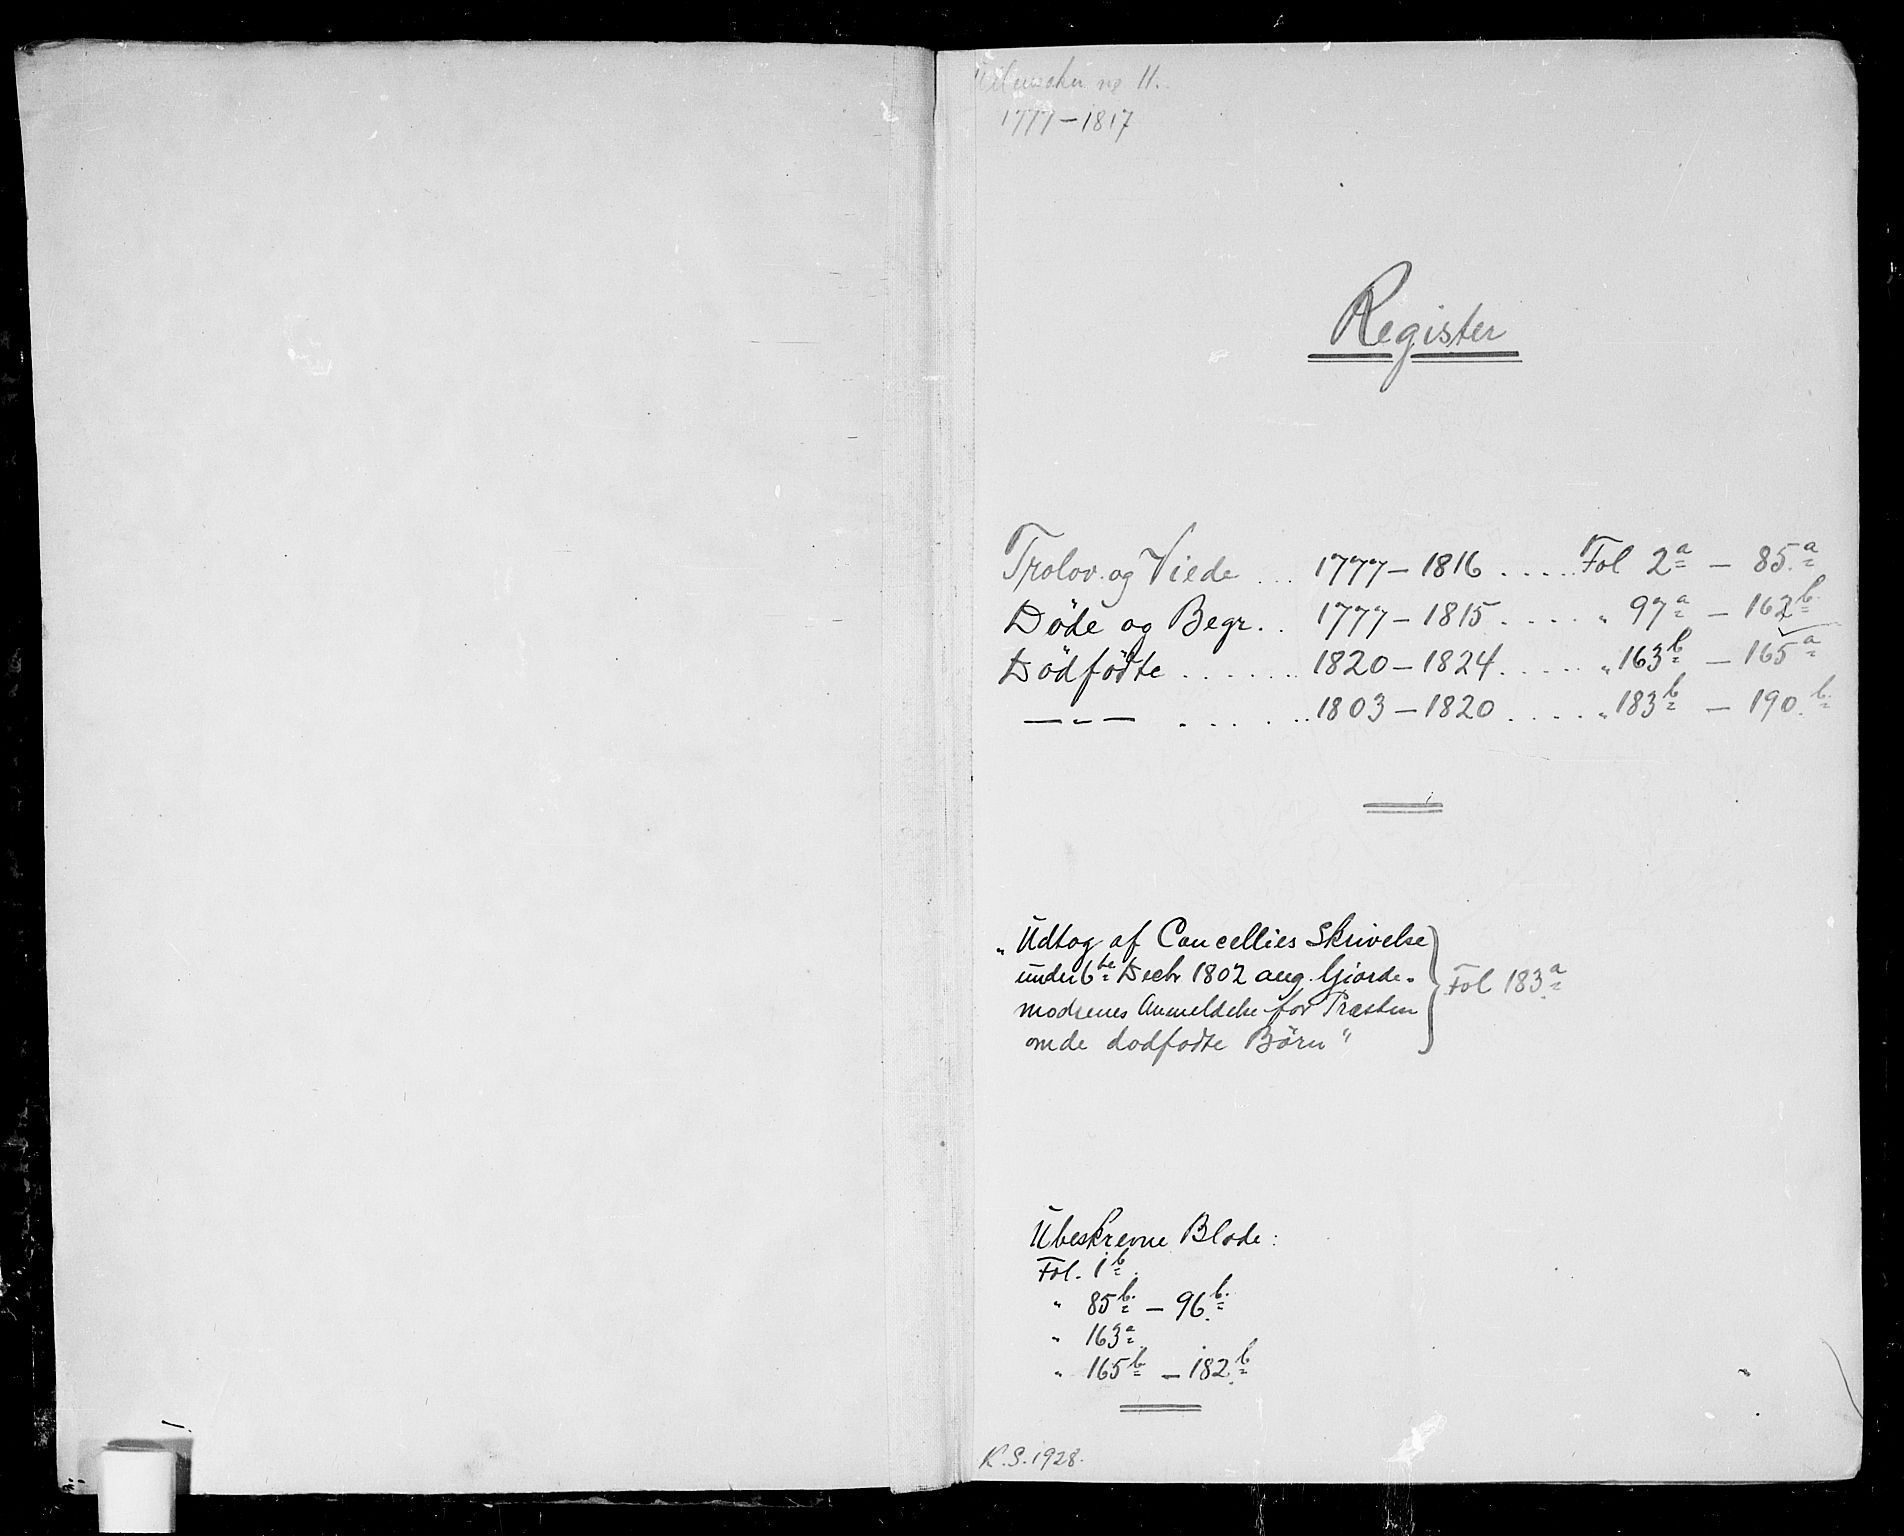 Ullensaker no 11.
1777-1817
Register
Trolov. og Viede ... 1777-1816 ..... Fol 2a - 85.a
Døde og Begr. . 1777-1815 ..... " 97a - 162b
Dødfødte ....... 1820-1824 ..... " 163b - 165a
— - — ...... 1803-1820 ..... " 183b - 190.b
" Udtog af Cancellies Skrivelse
under 6te Decbr 1802 ang. Gjorde-
modrenes Anmeldelse for Præsten
om de dødfødte Børn "
Fol 183a
Ubeskrevne Blade:
Fol. 1b
" 85b - 96b
" 163a
" 165b - 182b
K.S. 1928.